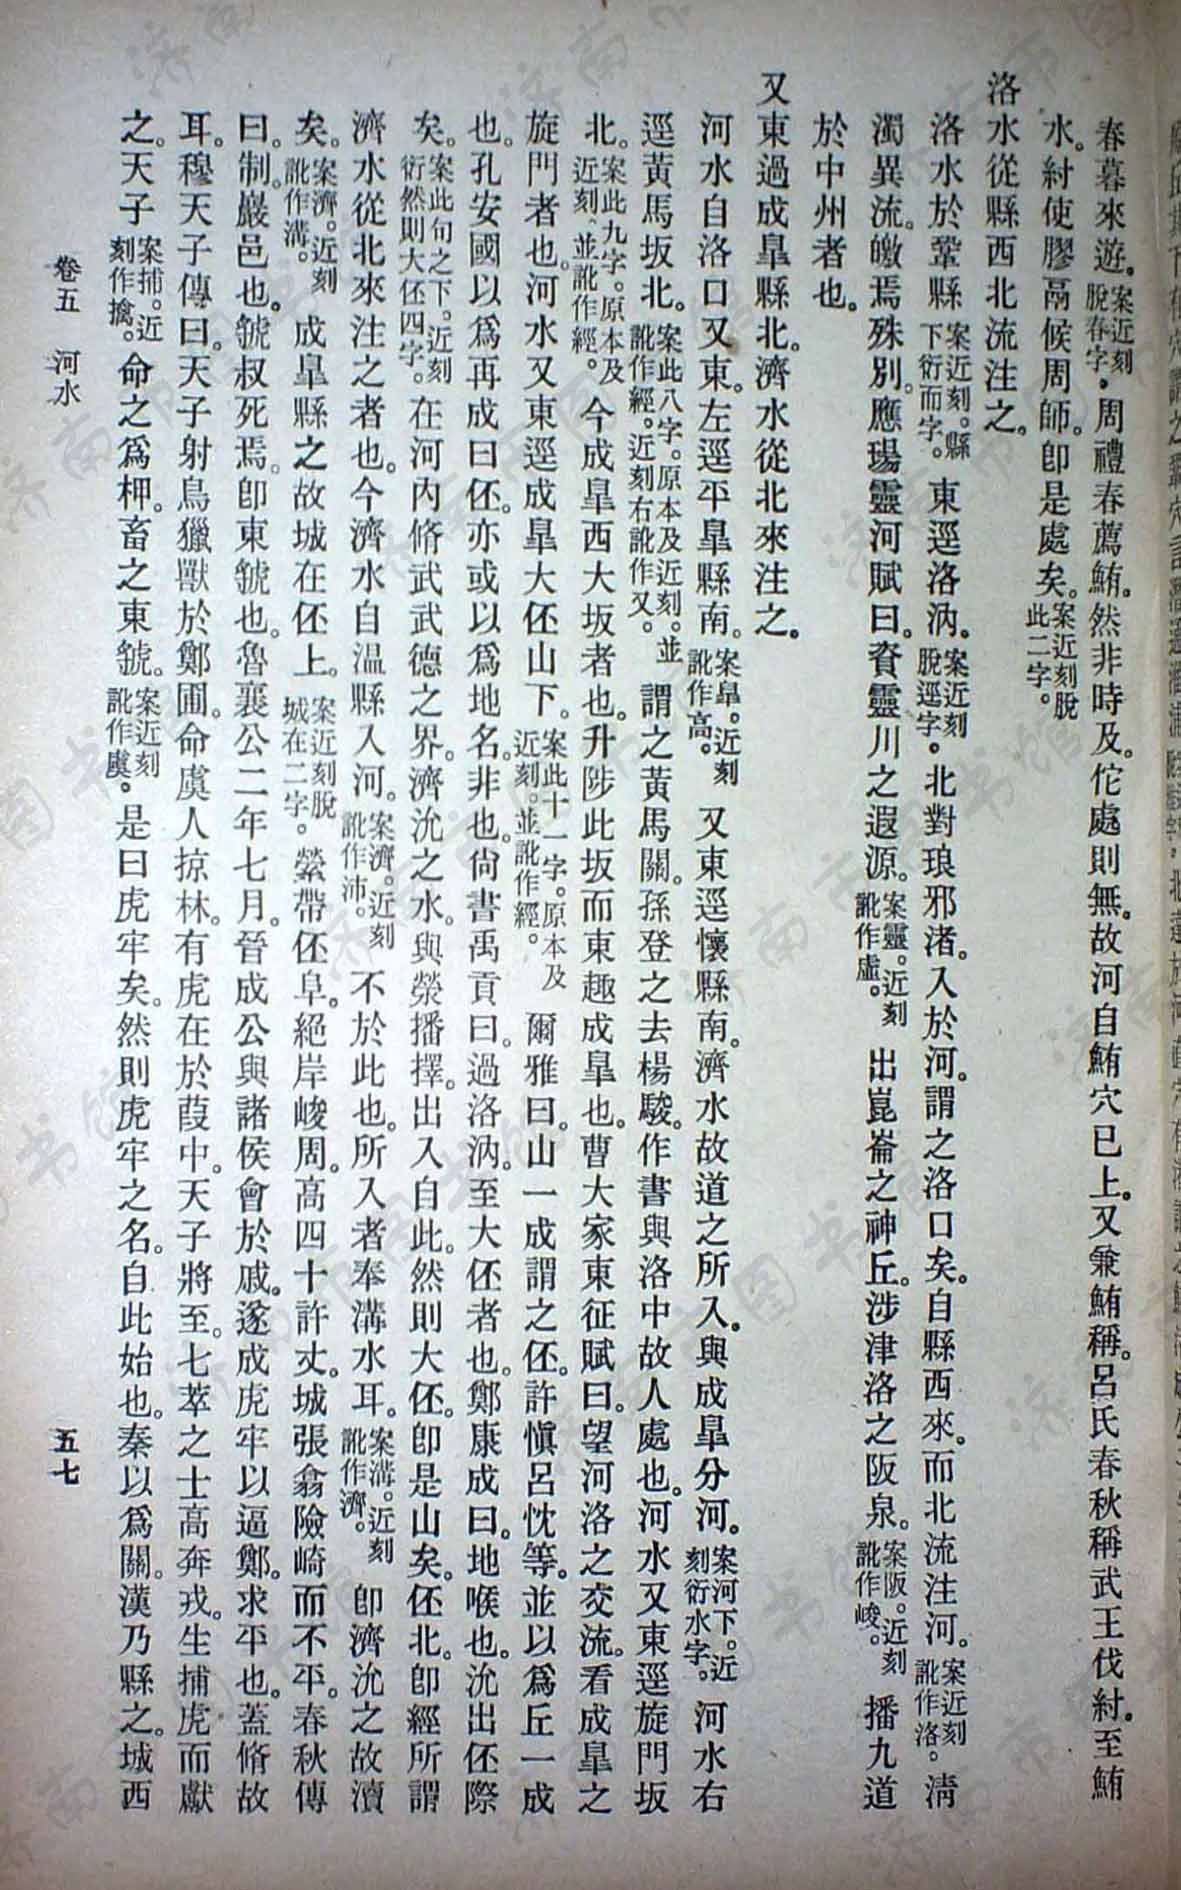 春暮來遊。案近刻脫春字。周禮春薦鮪。然非時及。佗處則無。故河自鮪穴已上。又兼鮪稱。呂氏春秋稱武王伐紂。至鮪
水。紂使膠鬲候周師。卽是處矣。案近刻脫此二字。
洛水從縣西北流注之。
洛水於鞏縣案近刻。縣下衍而字。東逕洛汭。案近刻脫逕字。北對琅邪渚。入於河。謂之洛口矣。自縣西來。而北流注河。案近刻訛作洛。淸
濁異流。皦焉殊別。應瑒靈河賦曰。資靈川之遐源。案靈。近刻訛作虛。出崑崙之神丘。涉津洛之阪泉。案阪。近刻訛作峻。播九道
於中州者也。
又東過成臯縣北。濟水從北來注之。
河水自洛口又東。左逕平臯縣南。案臯。近刻訛作高。又東逕懷縣南。濟水故道之所入。與成臯分河。案河下。近刻衍水字。河水右
逕黃馬坂北。案此八字。原本及近刻。並訛作經。近刻右訛作又。謂之黃馬關。孫登之去楊駿。作書與洛中故人處也。河水又東逕旋門坂
北。案此九字。原本及近刻、並訛作經。今成臯西大坂者也。升陟此坂而東趣成臯也。曹大家東征賦曰。望河洛之交流。看成臯之
旋門者也。河水又東逕成臯大伾山下。案此十一字。原本及近刻。並訛作經。爾雅曰。山一成謂之伾。許愼呂忱等。並以爲丘一成
也。孔安國以爲再成曰伾。亦或以爲地名。非也。尙書禹貢曰。過洛汭。至大伾者也。鄭康成曰。地喉也。沇出伾際
矣。案此句之下。近刻衍然則大伾四字。在河內脩武武德之界。濟沇之水。與滎播擇。出入自此。然則大伾。卽是山矣。伾北。卽經所謂
濟水從北來注之者也。今濟水自温縣入河。案濟。近刻訛作沛。不於此也。所入者奉溝水耳。案溝。近刻訛作濟。卽濟沇之故瀆
矣。案濟。近刻訛作溝。成臯縣之故城在伾上。案近刻脫城在二字。縈帶伾阜。絕岸峻周。高四十許丈。城張翕險崎而不平。春秋傳
曰。制。巖邑也。虢叔死焉。卽東虢也。魯襄公二年七月。晉成公與諸侯會於戚。遂成虎牢以逼鄭。求平也。蓋脩故
耳。穆天子傳曰。天子射鳥獵獸於鄭圃。命虞人掠林。有虎在於葭中。天子將至。七萃之士高奔戎。生捕虎而獻
之。天子案捕。近刻作擒。命之爲柙。畜之東虢。案近刻訛作虞。是曰虎牢矣。然則虎牢之名。自此始也。秦以爲關。漢乃縣之。城西
卷五　河水　五七